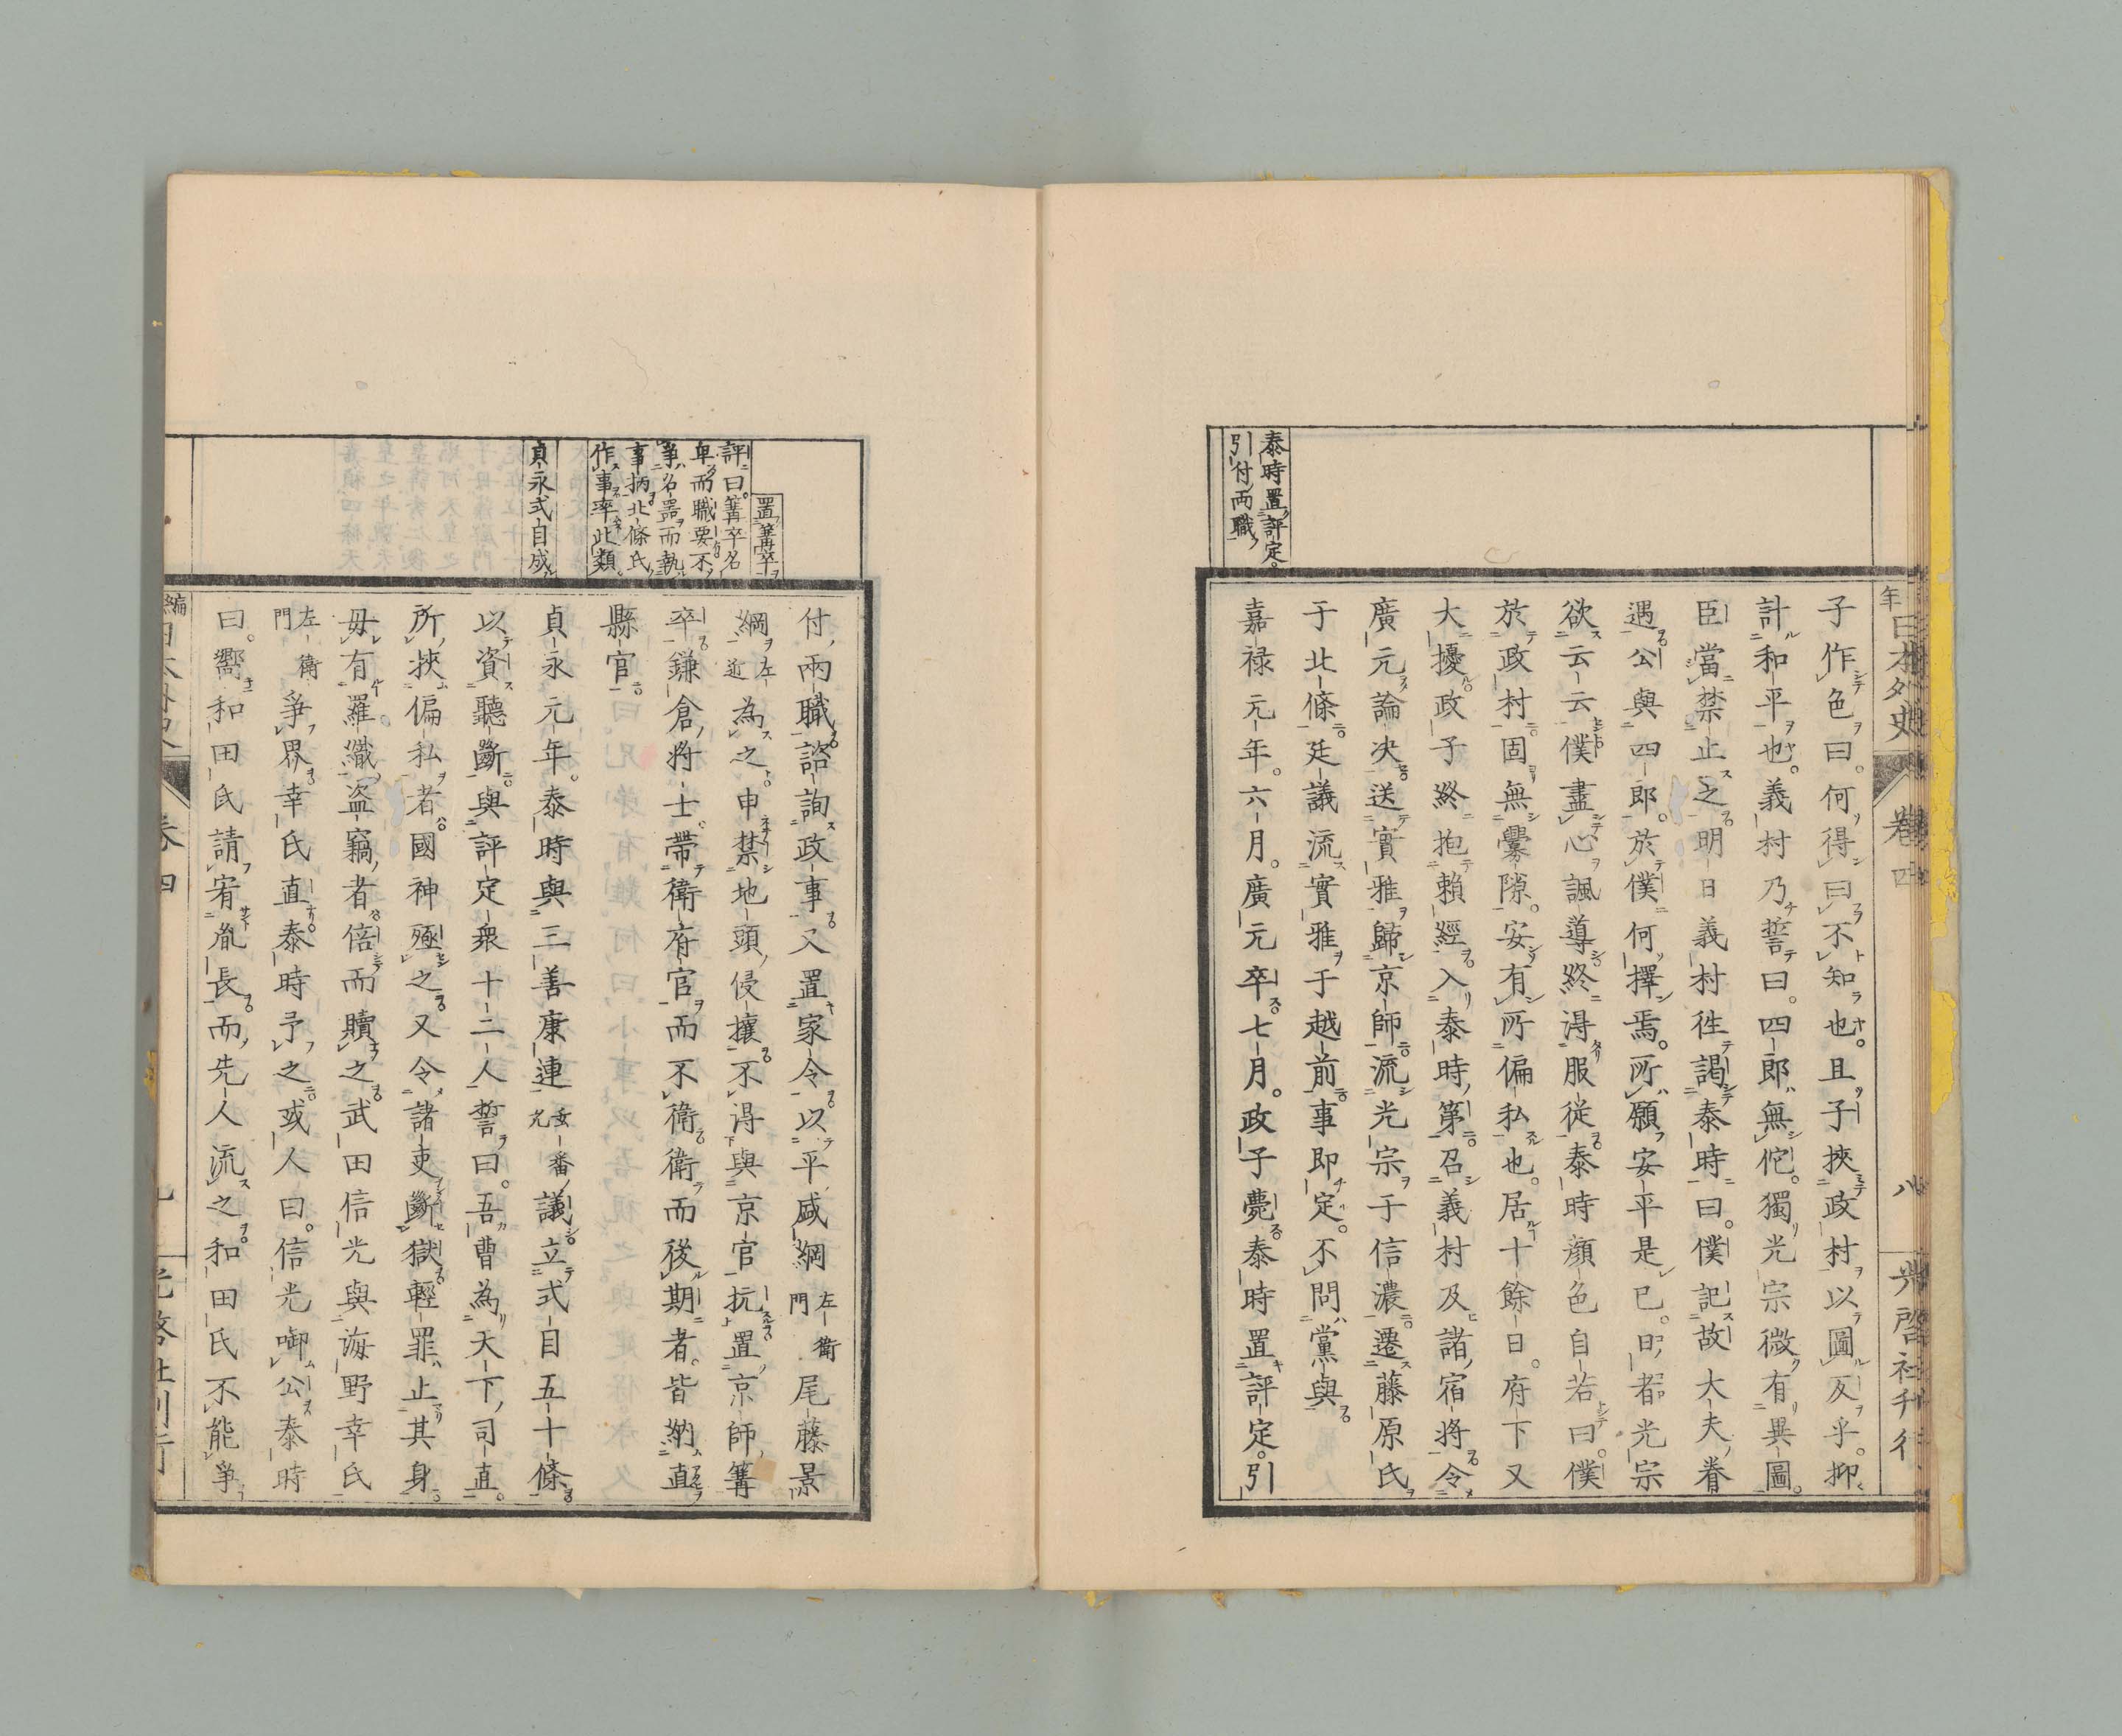 年日本外史 卷四 八 光啓社刊行
泰時置評定
引付兩職
子作色曰。何得曰不知也。且子挾政村以圖反乎。抑
計和平也。義村乃誓曰。四郎無佗。獨光宗微有異圖。
臣當禁止之。明日義村徃謁泰時曰。僕記故大夫眷
遇公與四郎。於僕何擇焉。所願安平是已。日者光宗
欲云云僕盡心諷導終得服從泰時顔色自若曰。僕
於政村固無釁隙。安有所偏私也。居十餘日。府下又
大擾政子終抱賴經入泰時第。召義村及諸宿將令
廣元論決送實雅歸京師流光宗于信濃遷藤原氏
于北條。廷議流實雅于越前事即定。不問黨與
嘉祿元年。六月。廣元卒七月。政子薨泰時置評定。引
置篝卒
評曰。篝卒名
卑而職要不
爭名器而執
事柄北條氏
作事率此類
貞永式目成
付兩職諮詢政事又置家令以平盛綱左衛門尾藤景
綱左近為之。申禁地頭侵攘不得與京官抗置京師篝
卒鎌倉將士帶衛府官而不衛衛而後期者。皆納直
縣官
貞永元年。泰時與三善康連玄番允議立式目五十條
以資聽斷與評定衆十二人誓曰。吾曹為天下司直。
所挾偏私者國神殛之又令諸吏斷獄輕罪止其身
毋有羅織。盜竊者倍而贖之武田信光與海野幸氏
左衛門爭界幸氏直泰時予之或人曰。信光啣公泰時
曰。嚮和田氏請宥胤長而先人流之和田氏不能爭